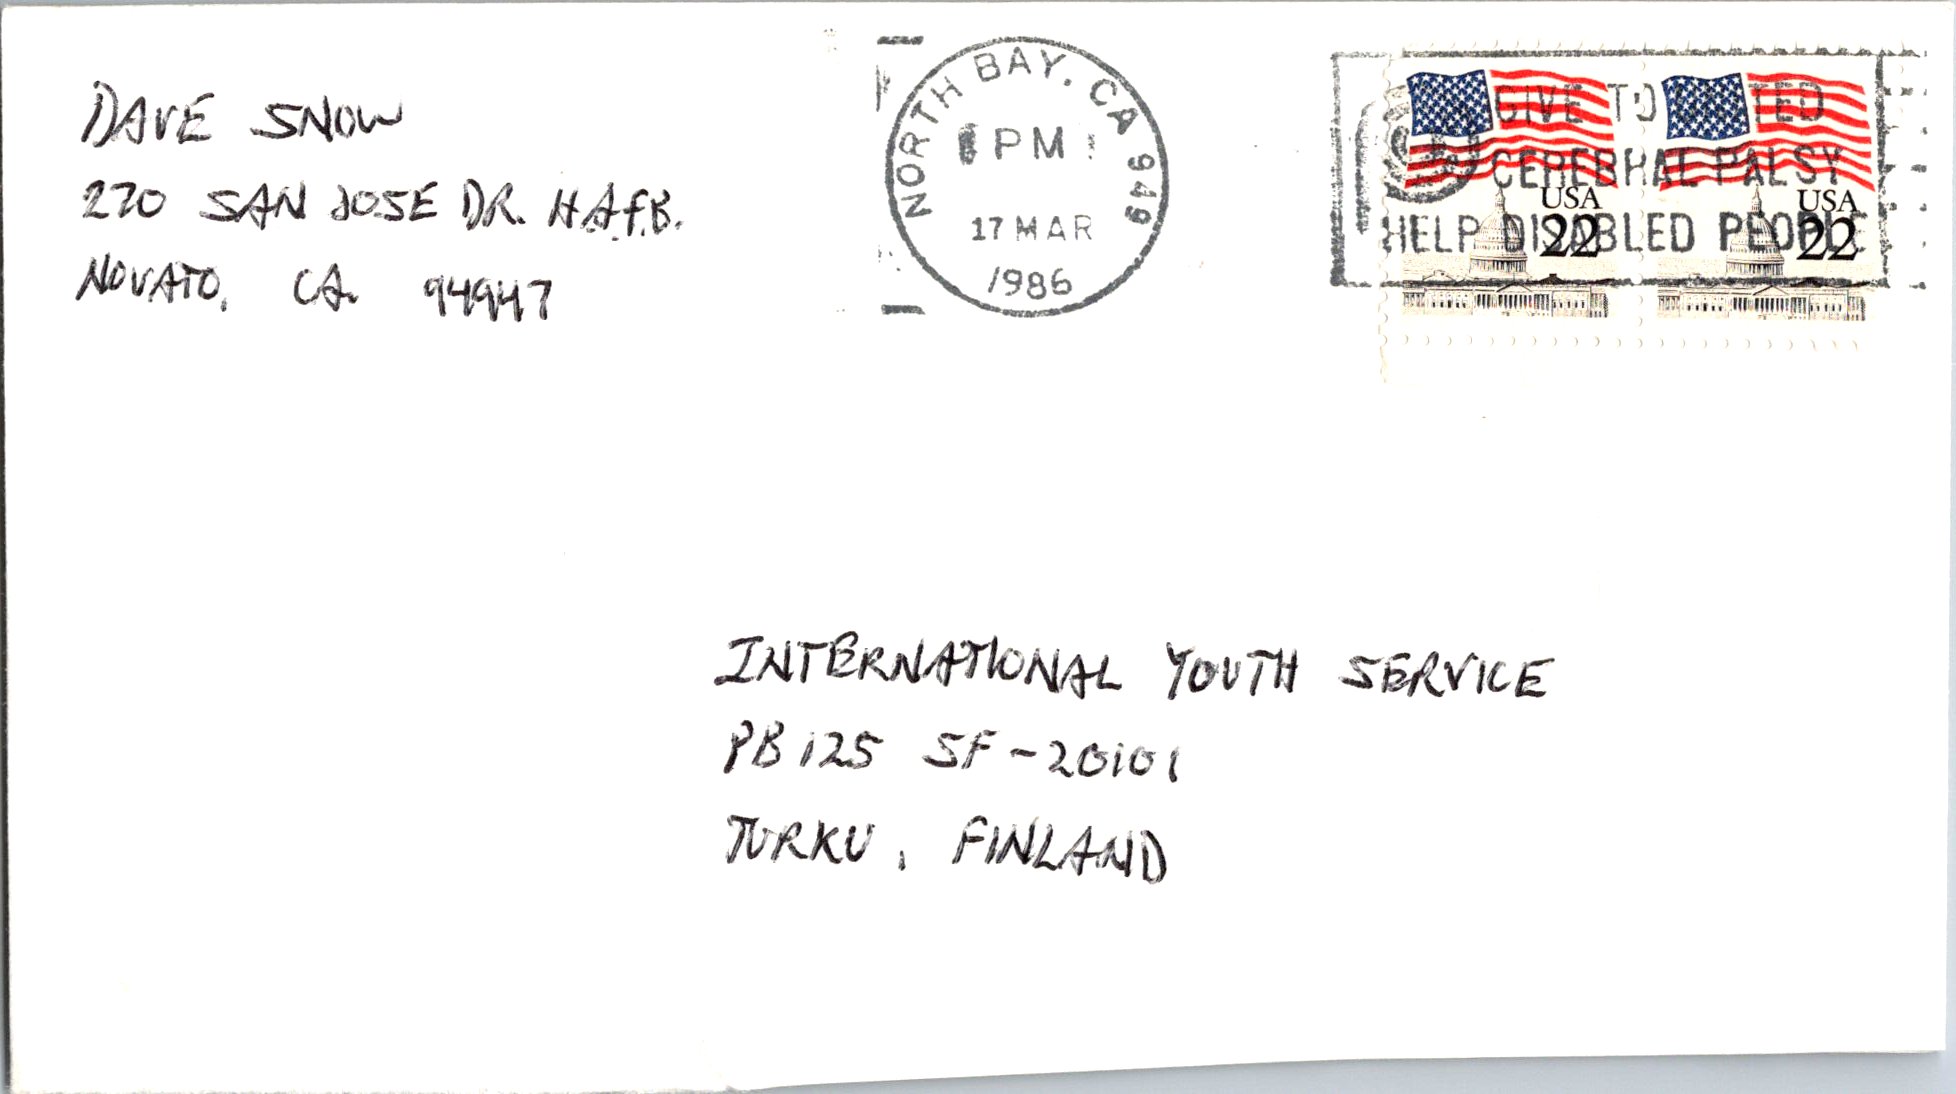 DAVE SNOW
270 SAN JOSE DR. H.A.F.B.
NOVATO, CA. 94947
NORTH BAY, CA 949
PM
17 MAR
1986
GIVE TO UNITED
CEREBRAL PALSY
HELP DISABLED PEOPLE
USA
22
USA
22
INTERNATIONAL YOUTH SERVICE
PB 125 SF-20101
TURKU, FINLAND